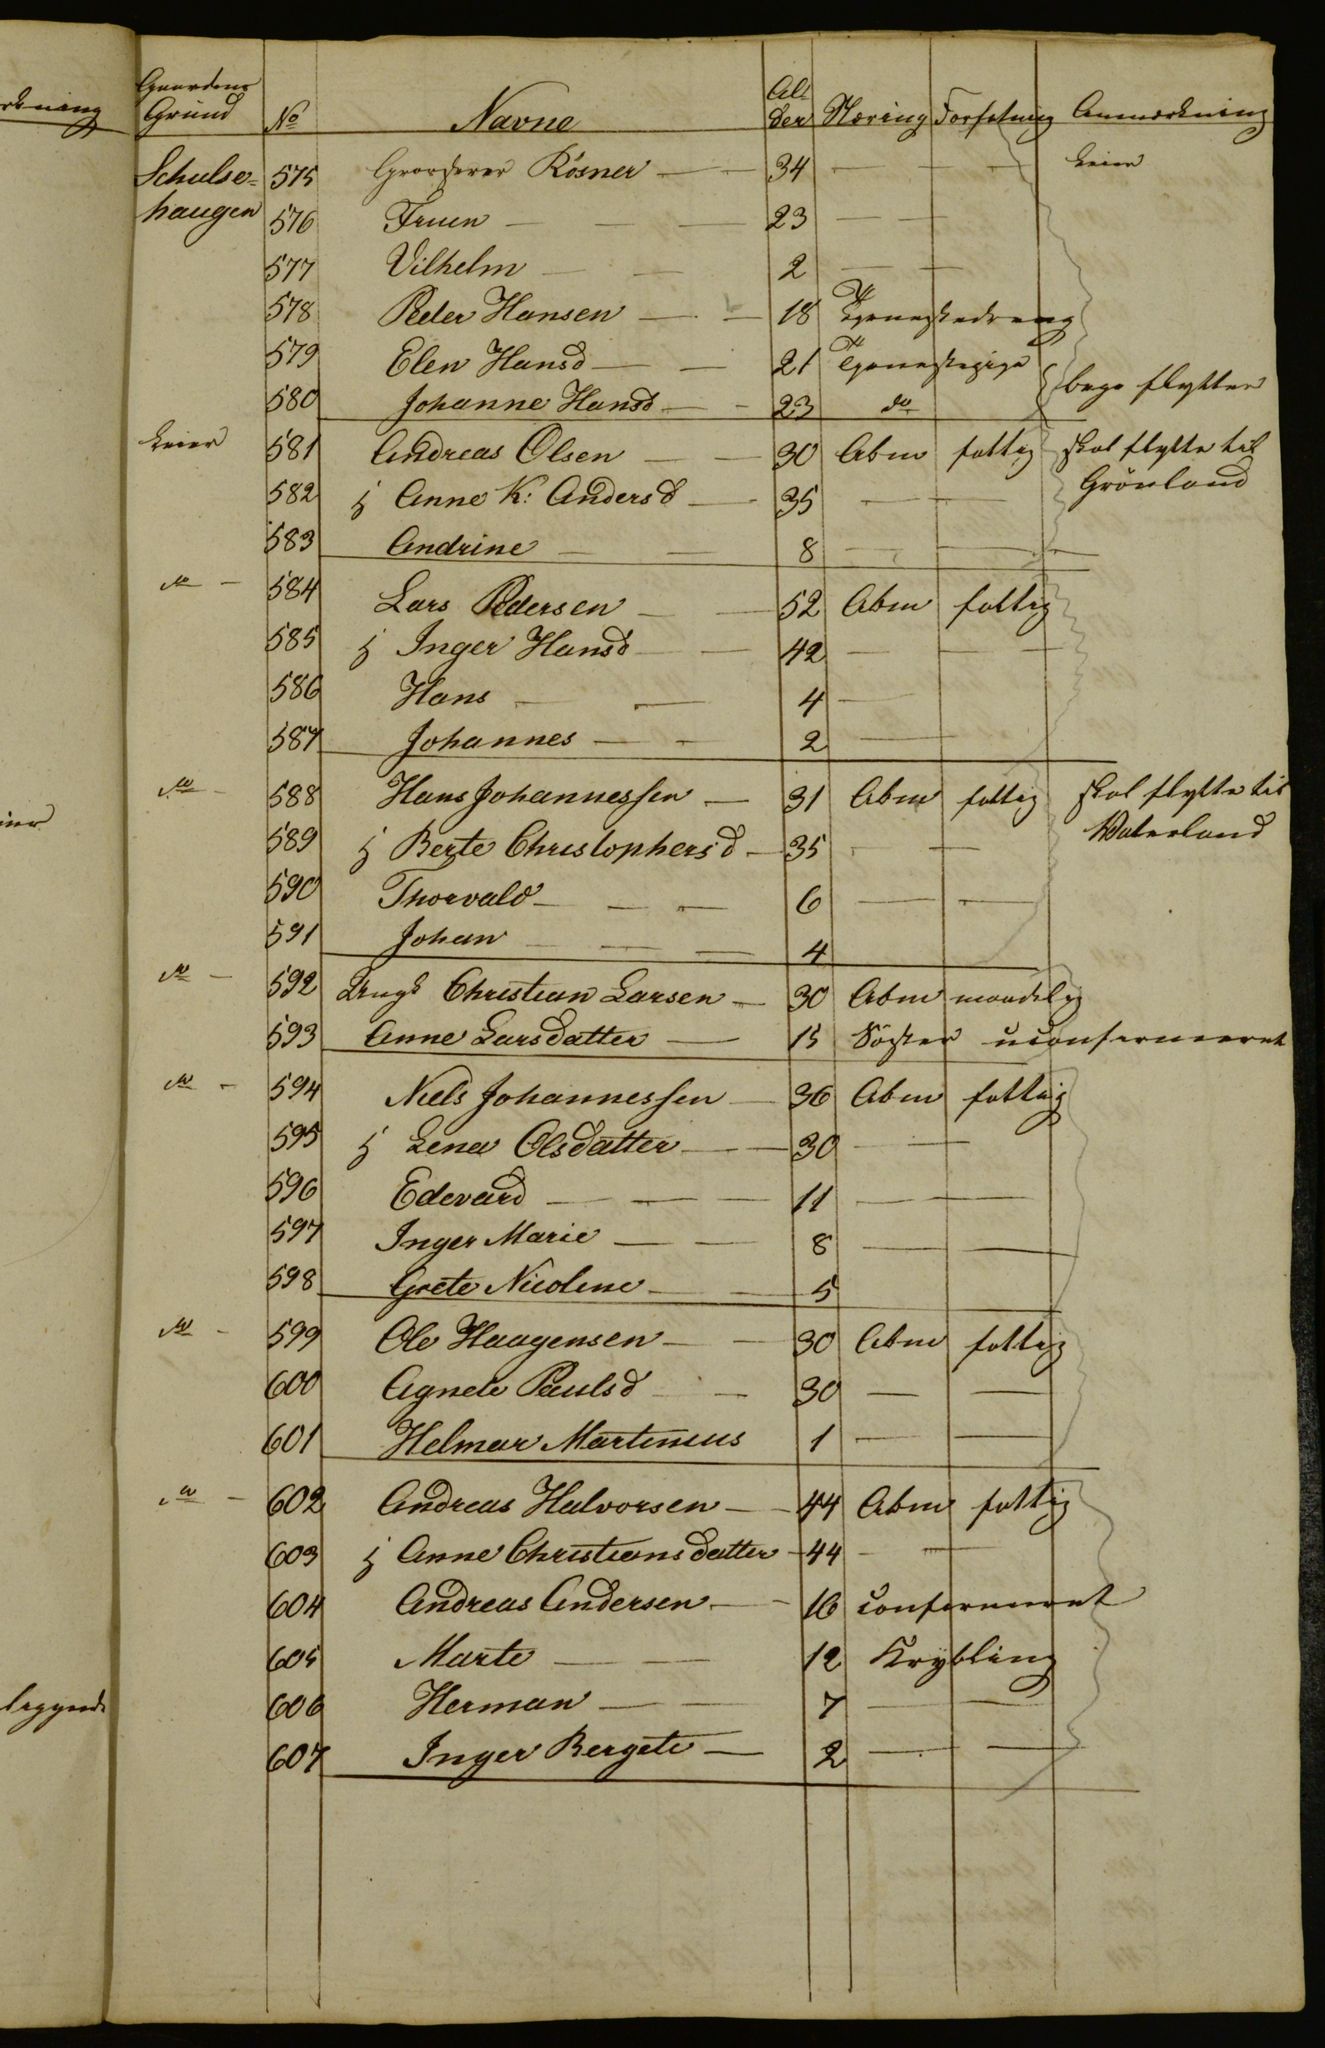 Gaardens Grund No Navne Alder Næring Forfatning Anmærkning
Schulse- 575 Grosserer Rösner 34 leier
haugen 576 Fruen 23
577 Vilhelm 2
578 Peder Hansen 18 Tjenestedreng
579 Elen Hansd 21 Tjenestepige
580 Johanne Hansd 23 do bege flytter
leier 581 Andreas Olsen 30 Abm fattig skal flytte til
582 Anne K: Andersd 35 Grönland
583 Andrine 8
do 584 Lars Pedersen 52 Abm fattig
585 Inger Hansd 42
586 Hans 4
587 Johannes 2
do 588 Hans Johannessen 31 Abm fattig skal flytte til
589 Berte Christophersd 35 Waterland
590 Thorvald 6
591 Johan 4
do 592 Ungk Christian Larsen 30 Abm maadelig
593 Anne Larsdatter 15 Söster uconfirmeret
do 594 Niels Johannessen 36 Abm fattig
595 Lena Olsdatter 30
596 Edevard 11
597 Inger Marie 8
598 Grete Nicoline 5
do 599 Ole Haagensen 30 Abm fattig
600 Agnete Paulsd 30
601 Helmar Martinius 1
do 602 Andreas Halvorsen 44 Abm fattig
603 Anne Christiansdatter 44
604 Andreas Andersen 16 confirmeret
605 Marte 12 Krybling
606 Herman 7
607 Inger Bergete 2